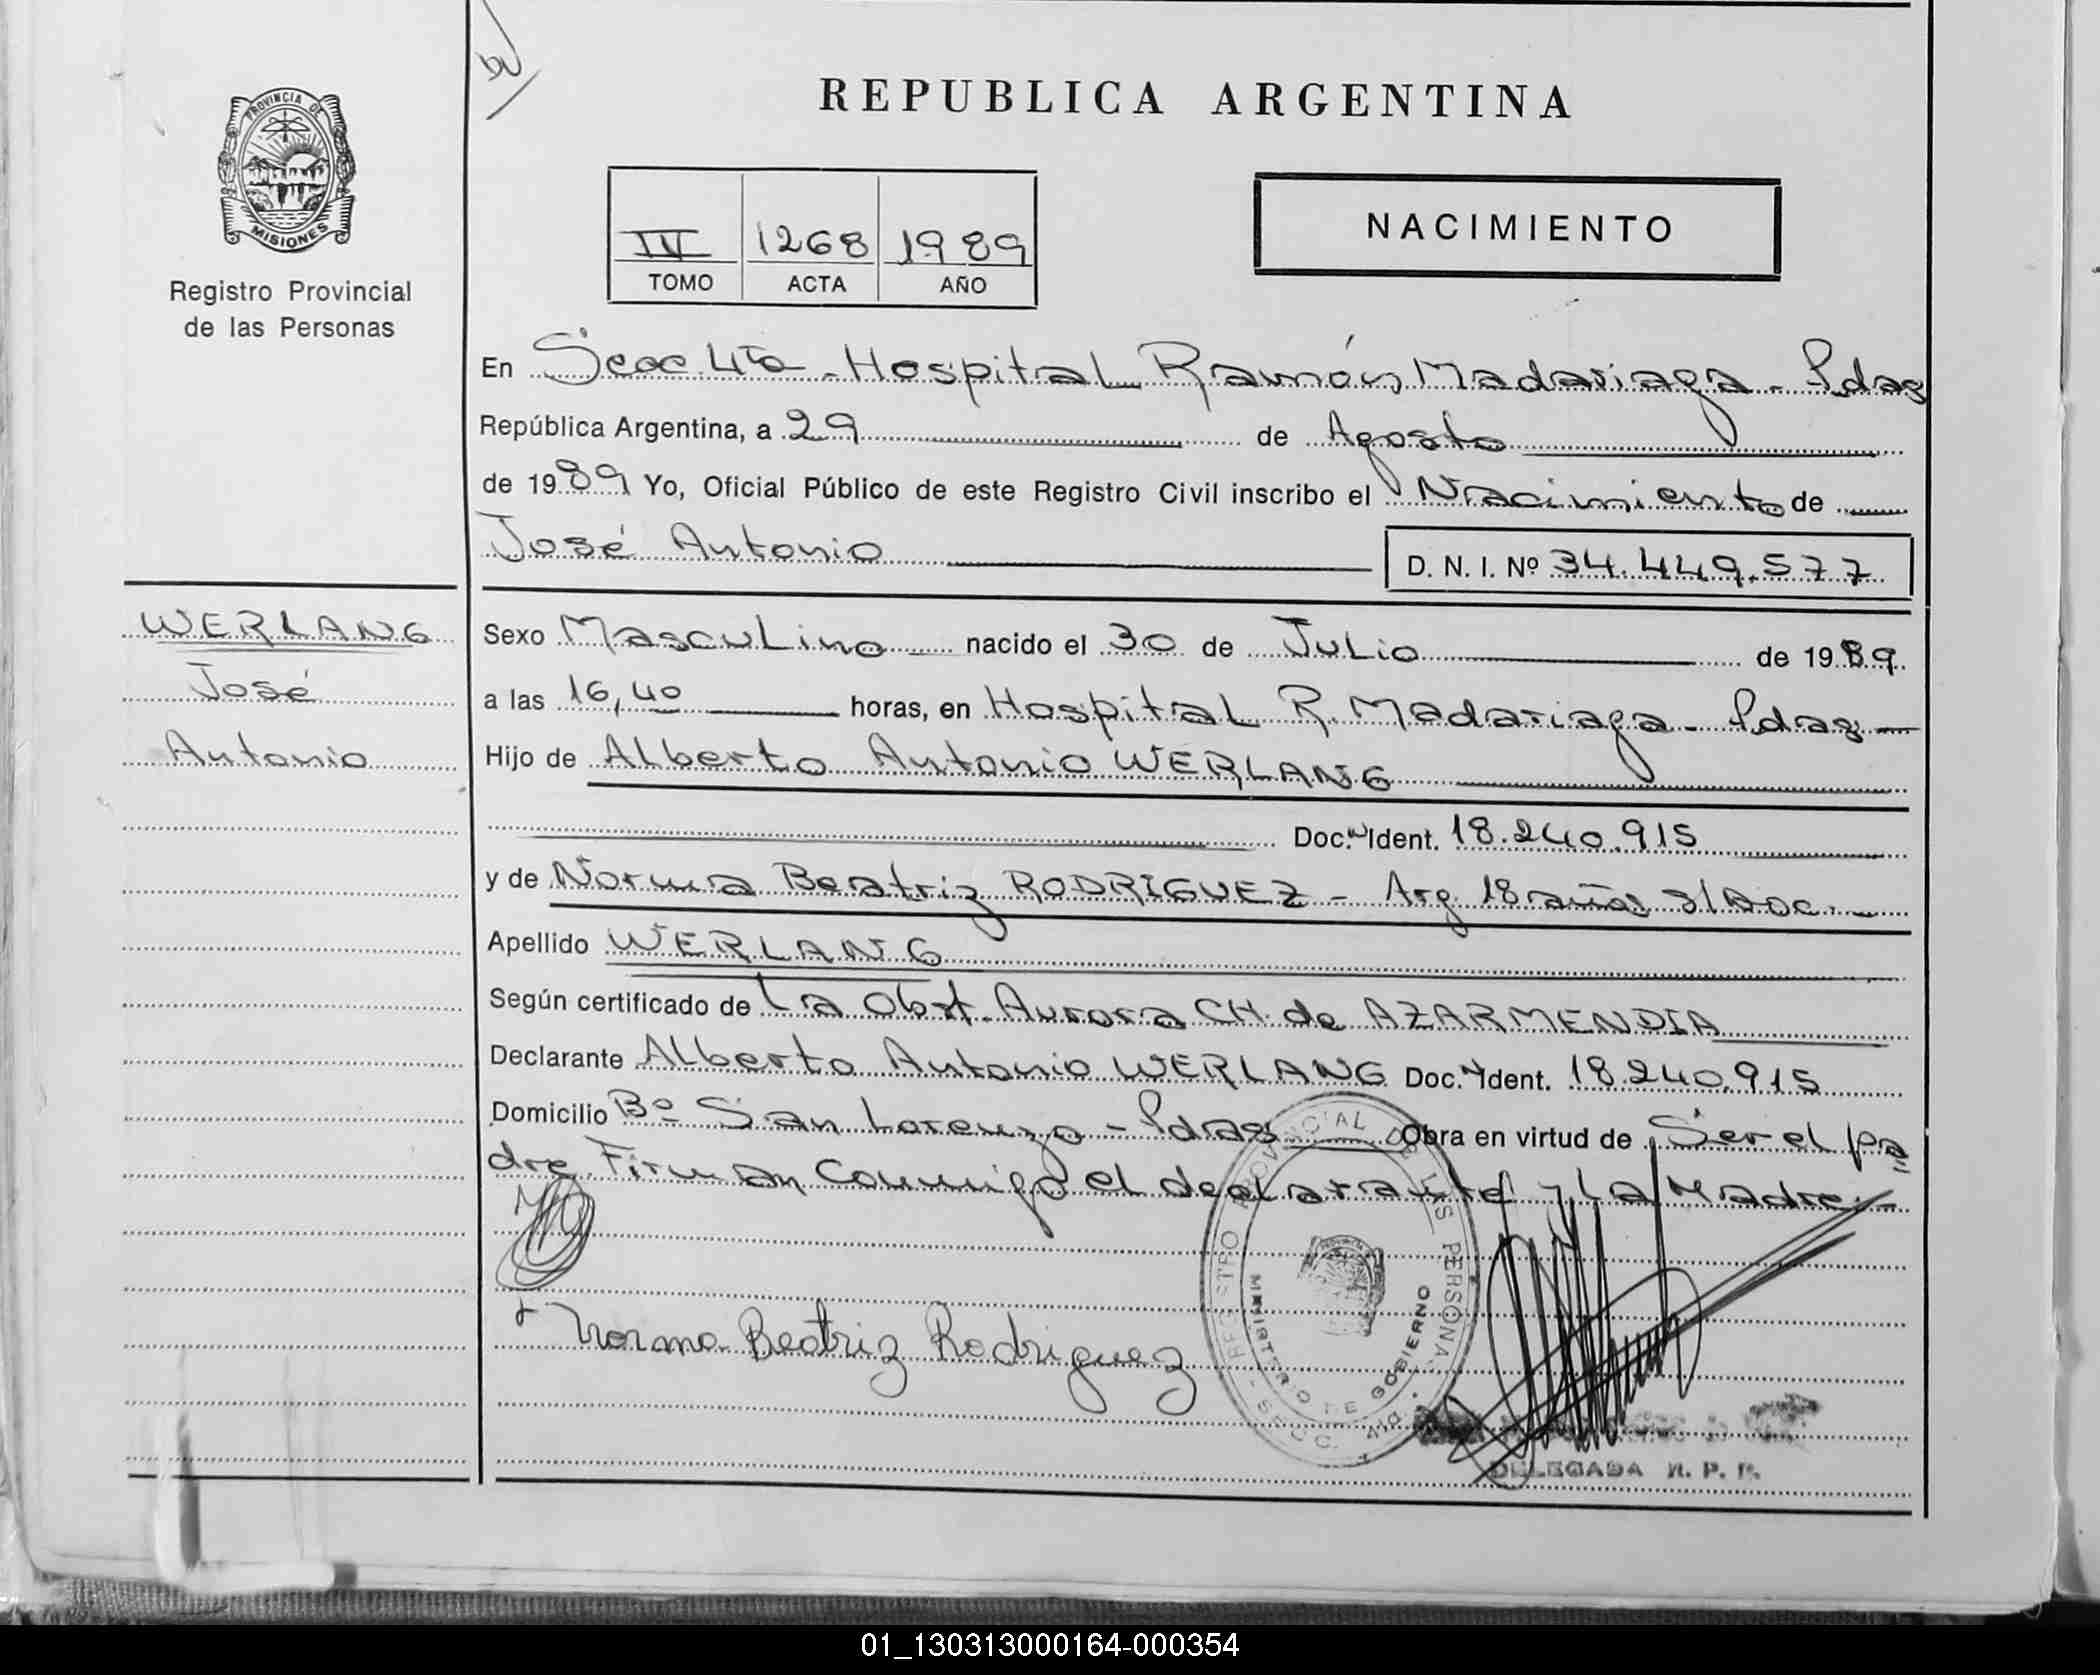 REPUBLICA ARGENTINA
PROVINCIA DE
MISIONES
Registro Provincial
de las Personas
IV 1268 1989
TOMO ACTA AÑO
NACIMIENTO
En Secc 4ta - Hospital Ramón Madariaga - Pdas
República Argentina, a 29 de Agosto
de 1989 Yo, Oficial Público de este Registro Civil inscribo el Nacimiento de
José Antonio D. N. I. Nº 34.449.577
WERLANG
José
Antonio
Sexo Masculino nacido el 30 de Julio de 1989
a las 16,40 horas, en Hospital R. Madariaga - Pdas -
Hijo de Alberto Antonio WERLANG
Doc. Ident. 18.240.915
y de Norma Beatriz RODRIGUEZ - Arg 18 años s/Doc. -
Apellido WERLANG
Según certificado de La Obst. Aurora CH. de AZARMENDIA
Declarante Alberto Antonio WERLANG Doc. Ident. 18.240.915
Domicilio Bº San Lorenzo - Pdas Obra en virtud de Ser el pa
dre Firman Conmigo el declarante y La Madre. -
Norma Beatriz Rodriguez
REGISTRO PROVINCIAL DE LAS PERSONAS
MINISTERIO DE GOBIERNO
DELEGADA R. P. P.
01_130313000164-000354